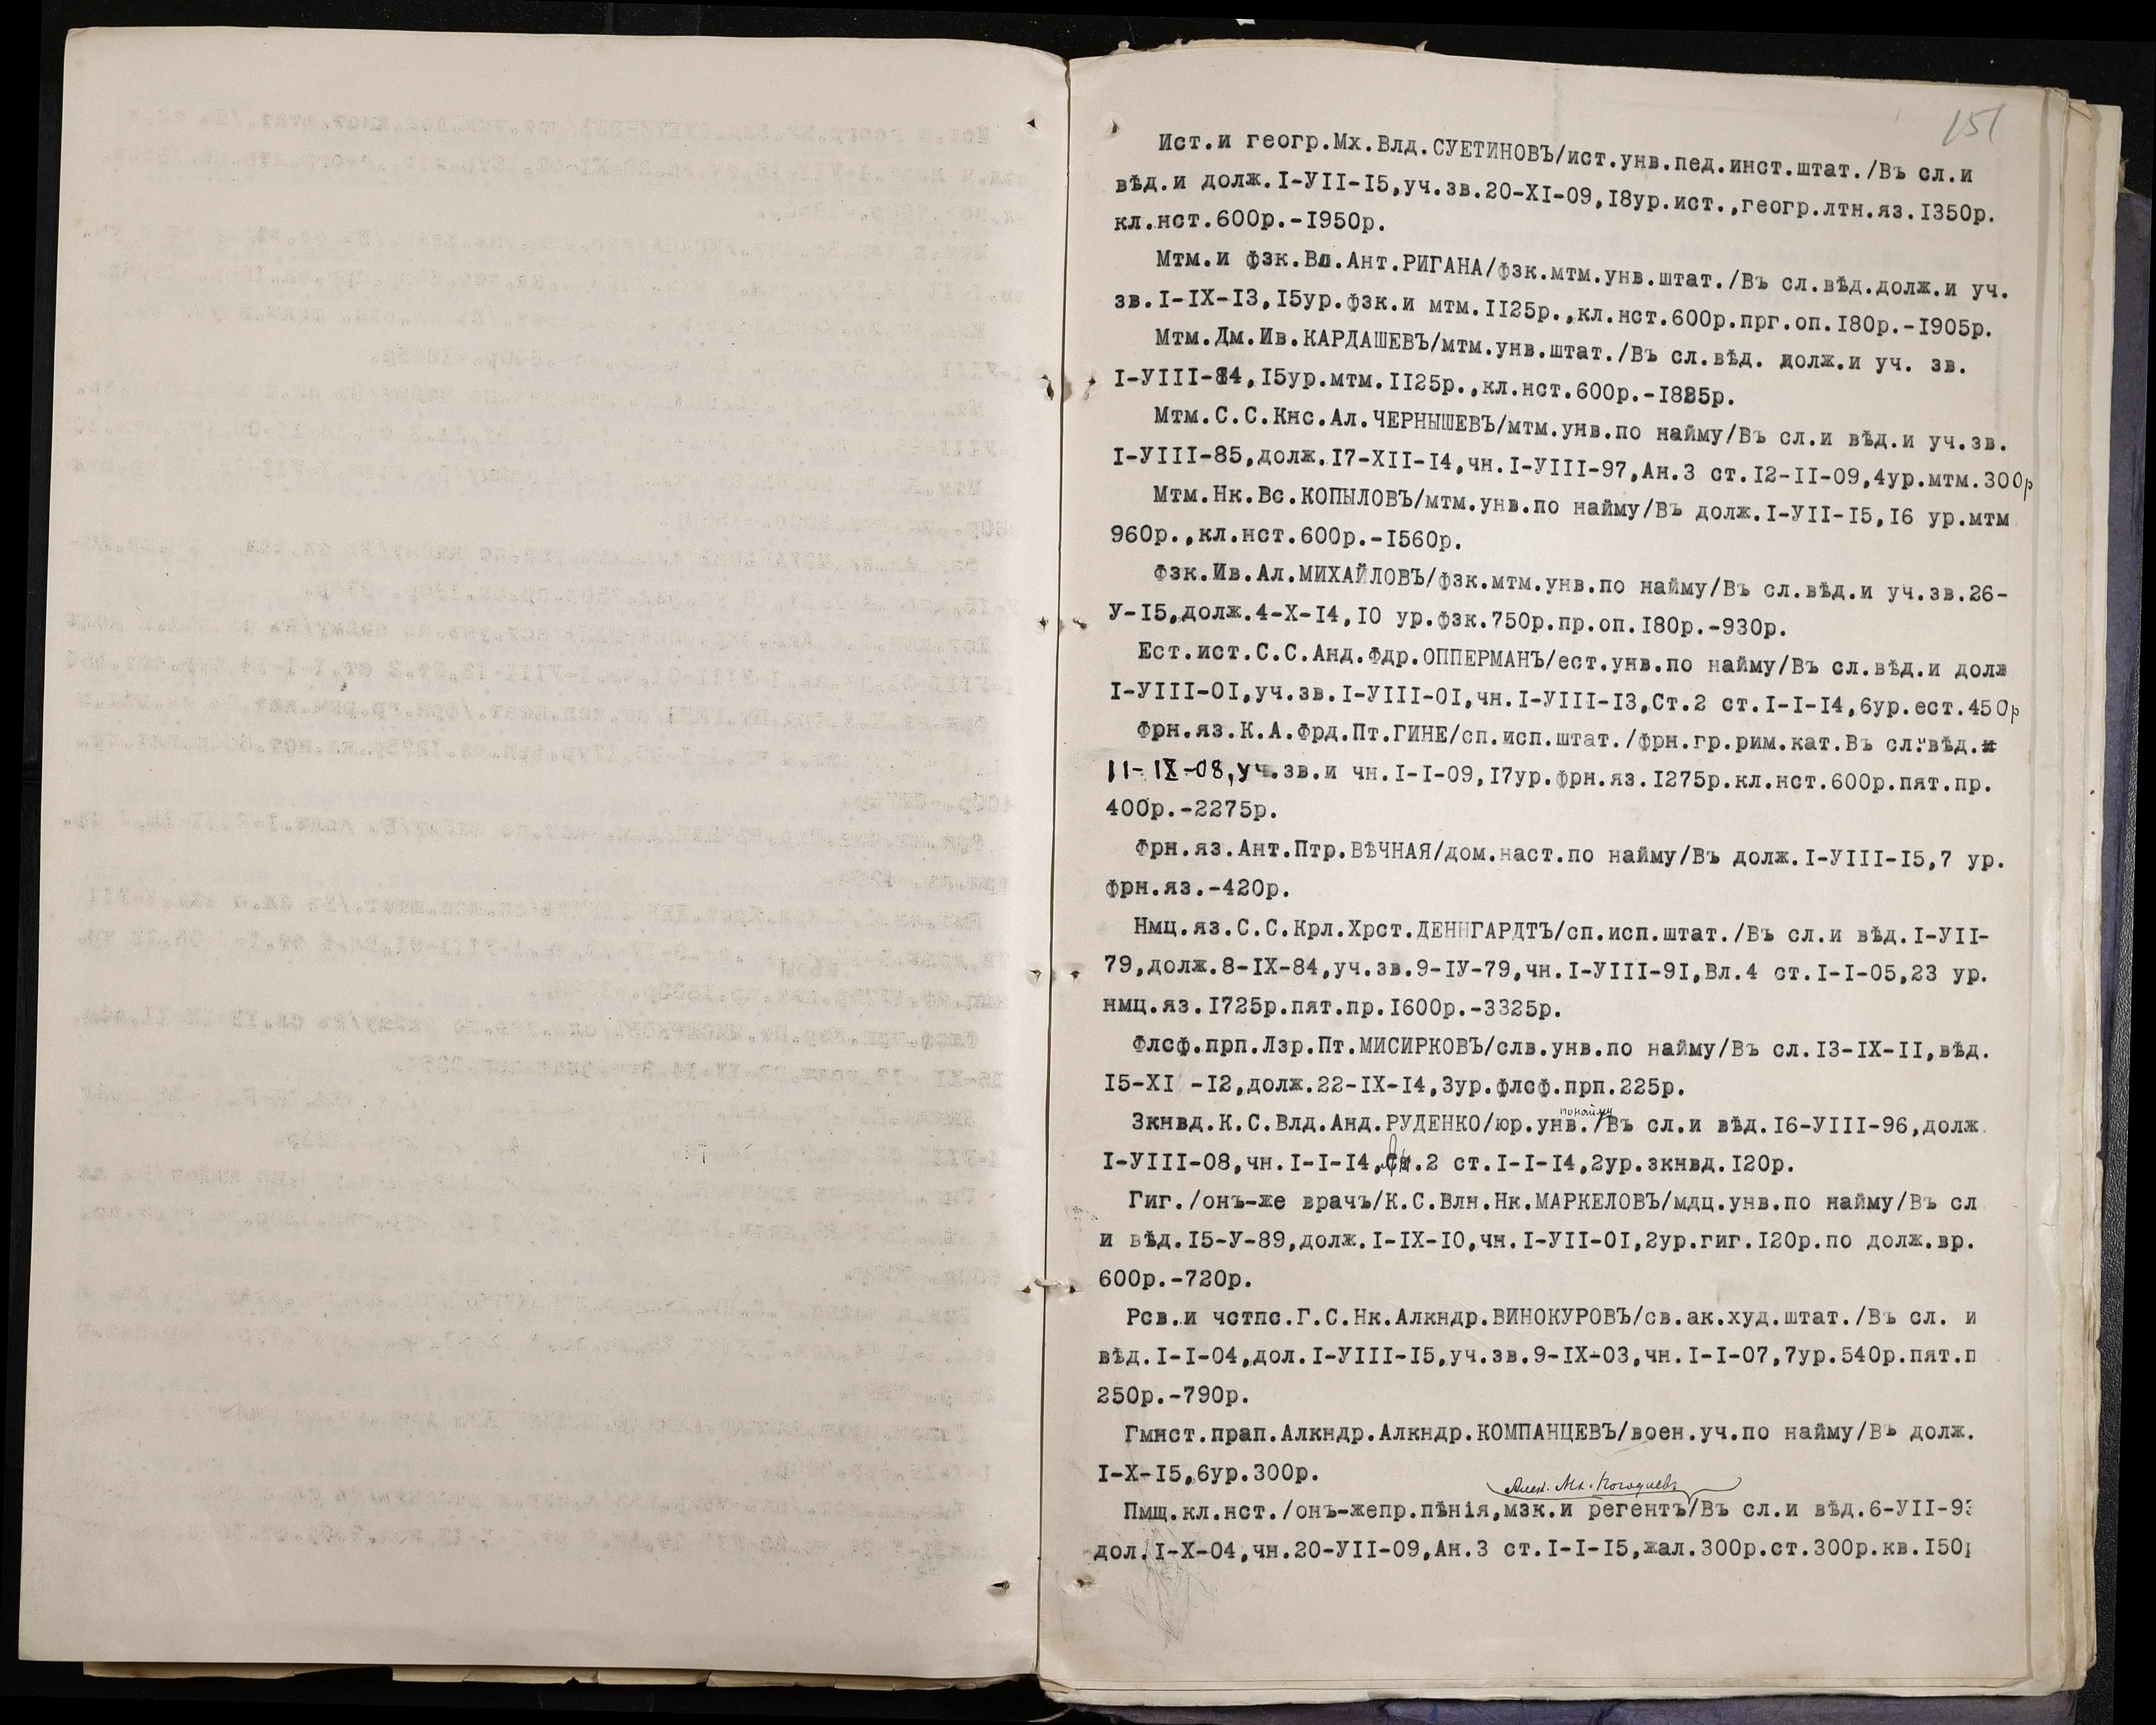 151
Ист.и геогр.Мх.Влд.СУЕТИНОВЪ/ист.унв.пед.инст.штат./Въ сл.и
вѣд.и долж.I-УII-I5,уч.зв.20-XI-09,I8ур.ист.,геогр.лтн.яз.I350р.
кл.нст.600р.-I950р.
Мтм.и фзк.Вл.Ант.РИГАНА/фзк.мтм.унв.штат./Въ сл.вѣд.долж.и уч.
зв.I-IX-I3,I5ур.фзк.и мтм.II25р.,кл.нст.600р.прг.оп.I80р.-I905р.
Мтм.Дм.Ив.КАРДАШЕВЪ/мтм.унв.штат./Въ сл.вѣд. долж.и уч. зв.
I-УIII-84,I5ур.мтм.II25р.,кл.нст.600р.-I825р.
Мтм.С.С.Кнс.Ал.ЧЕРНЫШЕВЪ/мтм.унв.по найму/Въ сл.и вѣд.и уч.зв.
I-УIII-85,долж.I7-XII-I4,чн.I-УIII-97,Ан.3 ст.I2-II-09,4ур.мтм.300р
Мтм.Нк.Вс.КОПЫЛОВЪ/мтм.унв.по найму/Въ долж.I-УII-I5,I6 ур.мтм
960р.,кл.нст.600р.-I560р.
Фзк.Ив.Ал.МИХАЙЛОВЪ/фзк.мтм.унв.по найму/Въ сл.вѣд.и уч.зв.26-
У-I5,долж.4-X-I4,I0 ур.фзк.750р.пр.оп.I80р.-930р.
Ест.ист.С.С.Анд.Фдр.ОППЕРМАНЪ/ест.унв.по найму/Въ сл.вѣд.и долж
I-УIII-0I,уч.зв.I-УIII-0I,чн.I-УIII-I3,Ст.2 ст.I-I-I4,6ур.ест.450р
Фрн.яз.К.А.Фрд.Пт.ГИНЕ/сп.исп.штат./фрн.гр.рим.кат.Въ сл.вѣд.и
11-IX-08,уч.зв.и чн.I-I-09,I7ур.фрн.яз.I275р.кл.нст.600р.пят.пр.
400р.-2275р.
Фрн.яз.Ант.Птр.ВѢЧНАЯ/дом.наст.по найму/Въ долж.I-УIII-I5,7 ур.
фрн.яз.-420р.
Нмц.яз.С.С.Крл.Хрст.ДЕННГАРДТЪ/сп.исп.штат./Въ сл.и вѣд.I-УII-
79,долж.8-IX-84,уч.зв.9-IУ-79,чн.I-УIII-9I,Вл.4 ст.I-I-05,23 ур.
нмц.яз.I725р.пят.пр.I600р.-3325р.
Флсф.прп.Лзр.Пт.МИСИРКОВЪ/слв.унв.по найму/Въ сл.I3-IX-II,вѣд.
I5-XI -I2,долж.22-IX-I4,3ур.флсф.прп.225р.
по найму
Зкнвд.К.С.Влд.Анд.РУДЕНКО/юр.унв./Въ сл.и вѣд.I6-УIII-96,долж.
I-УIII-08,чн.I-I-I4,.2 ст.I-I-I4,2ур.зкнвд.I20р.
Гиг./онъ-же врачъ/К.С.Влн.Нк.МАРКЕЛОВЪ/мдц.унв.по найму/Въ сл
и вѣд.I5-У-89,долж.I-IX-I0,чн.I-УII-0I,2ур.гиг.I20р.по долж.вр.
600р.-720р.
Рсв.и чстпс.Г.С.Нк.Алкндр.ВИНОКУРОВЪ/св.ак.худ.штат./Въ сл. и
вѣд.I-I-04,дол.I-УIII-I5,уч.зв.9-IX-03,чн.I-I-07,7ур.540р.пят.п
250р.-790р.
Гмнст.прап.Алкндр.Алкндр.КОМПАНЦЕВЪ/воен.уч.по найму/Въ долж.
I-X-I5,6ур.300р.
Пмщ.кл.нст./онъ-жепр.пѣнія,мзк.и регентъ/Въ сл.и вѣд.6-УII-93
дол.I-X-04,чн.20-УII-09,Ан.3 ст.I-I-I5,жал.300р.ст.300р.кв.I50р